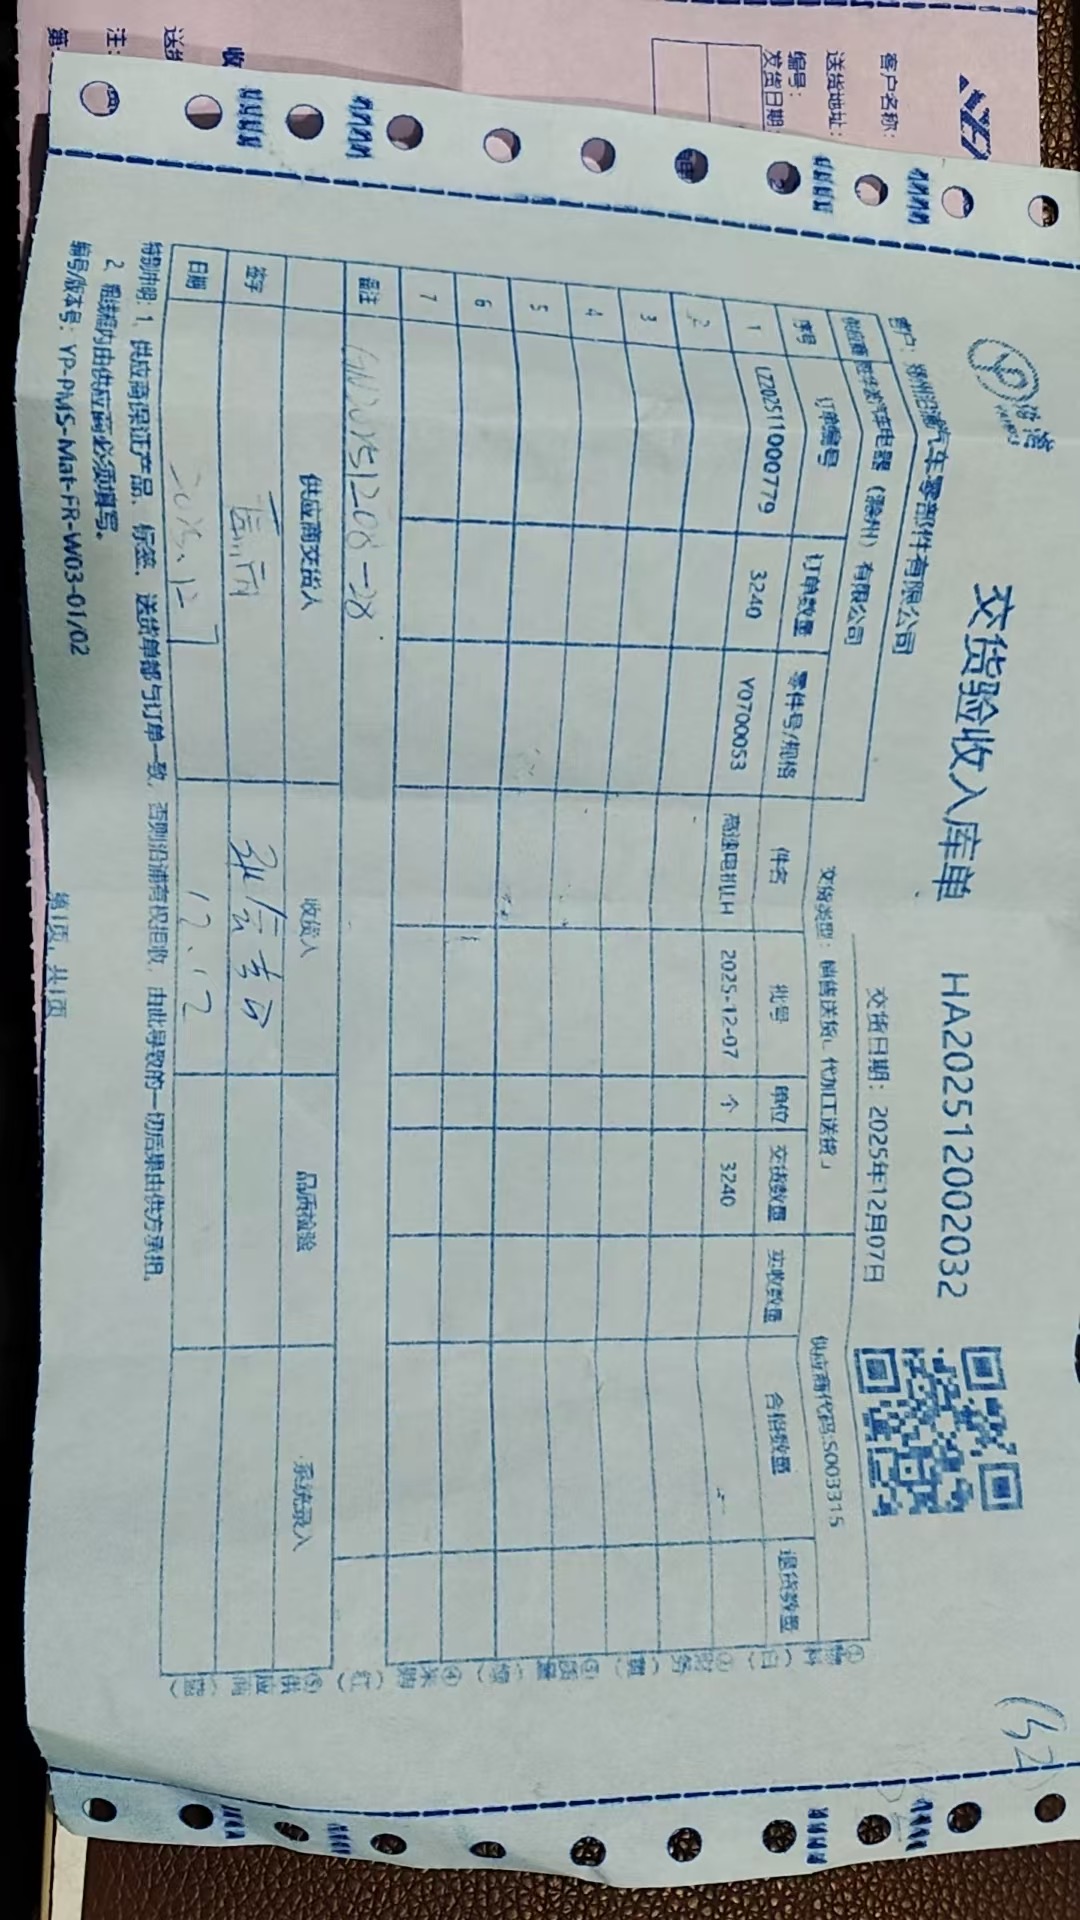 沿浦
交货验收入库单 HA202512002032
客户：郑州沿浦汽车零部件有限公司
交货日期：2025年12月07日
汽车电器（滁州）有限公司
交货类型：销售送货
代加工送货
供应商代码:S003315
序号 订单编号 订单数量 零件号/规格 件名 批号 单位 交货数量 实收数量 合格数量 退货数量
1 LZ202511000779 3240 Y0700053 高速电机LH 2025-12-07 个 3240
2
3
4
5
6
7
备注
供应商交货人 收货人 品质检验 系统录入
签字
日期 2025.12.7 12.12
特别申明：1、供应商保证产品、标签、送货单都与订单一致，否则沿浦有权拒收，由此导致的一切后果由供方承担。
2、粗线框内由供应商必须填写。
编号/版本号：YP-PMS-Mat-FR-W03-01/02
第1页，共1页
客户名称：
送货地址：
编号：
发货日期：